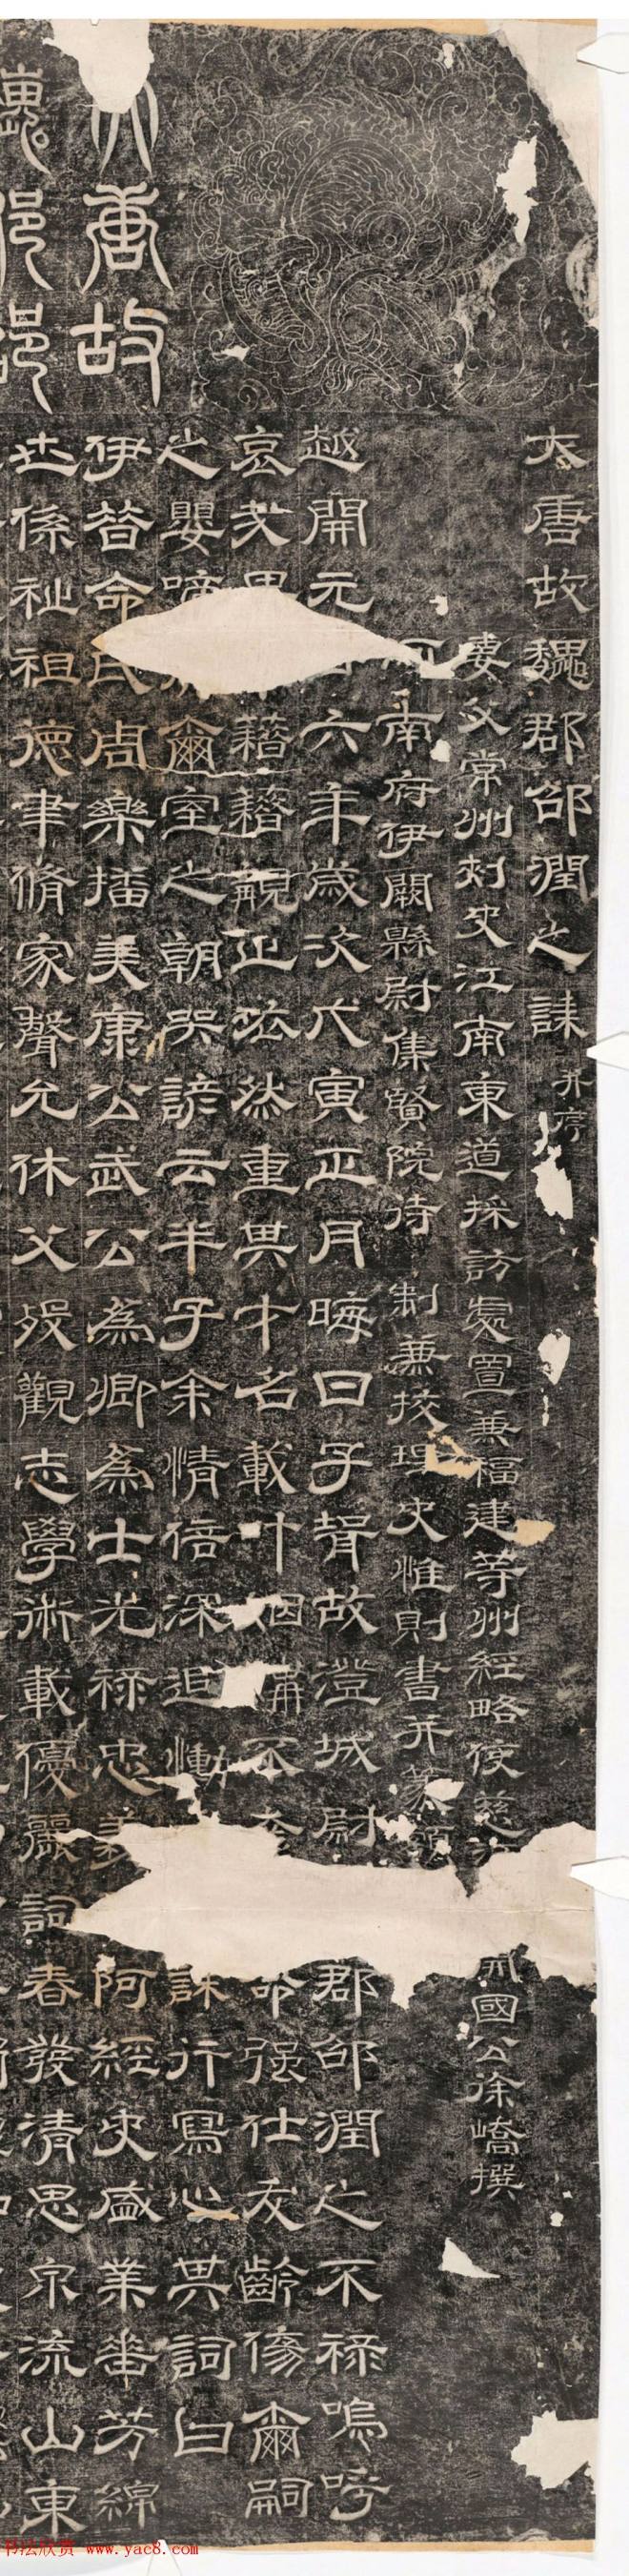 大唐故
魏郡邵
大唐故魏郡邵潤之誄并序
妻父常州刺史江南東道採訪處置兼福建等州經略使慈 國公徐嶠撰
河南府伊闕縣尉集賢院待制兼校理史惟則書并篆額
越開元 六年歲次戊寅正月晦日子壻故澄城尉 郡邵潤之不祿嗚呼
哀哉 藉藉親正泫然重其才名載 不 命强仕夭齡傷爾嗣
之嬰啼 爾室之朝哭諺云半子余情倍深迫慟 誄行寫心其詞曰
伊昔命氏周樂播美康公武公為卿為士光祿忠義 阿經史盛業華芳綿
世係祉祖德聿脩家聲允休父歿觀志學術載優麗詞春發清思泉流山東
书法欣赏 www.yac8.com